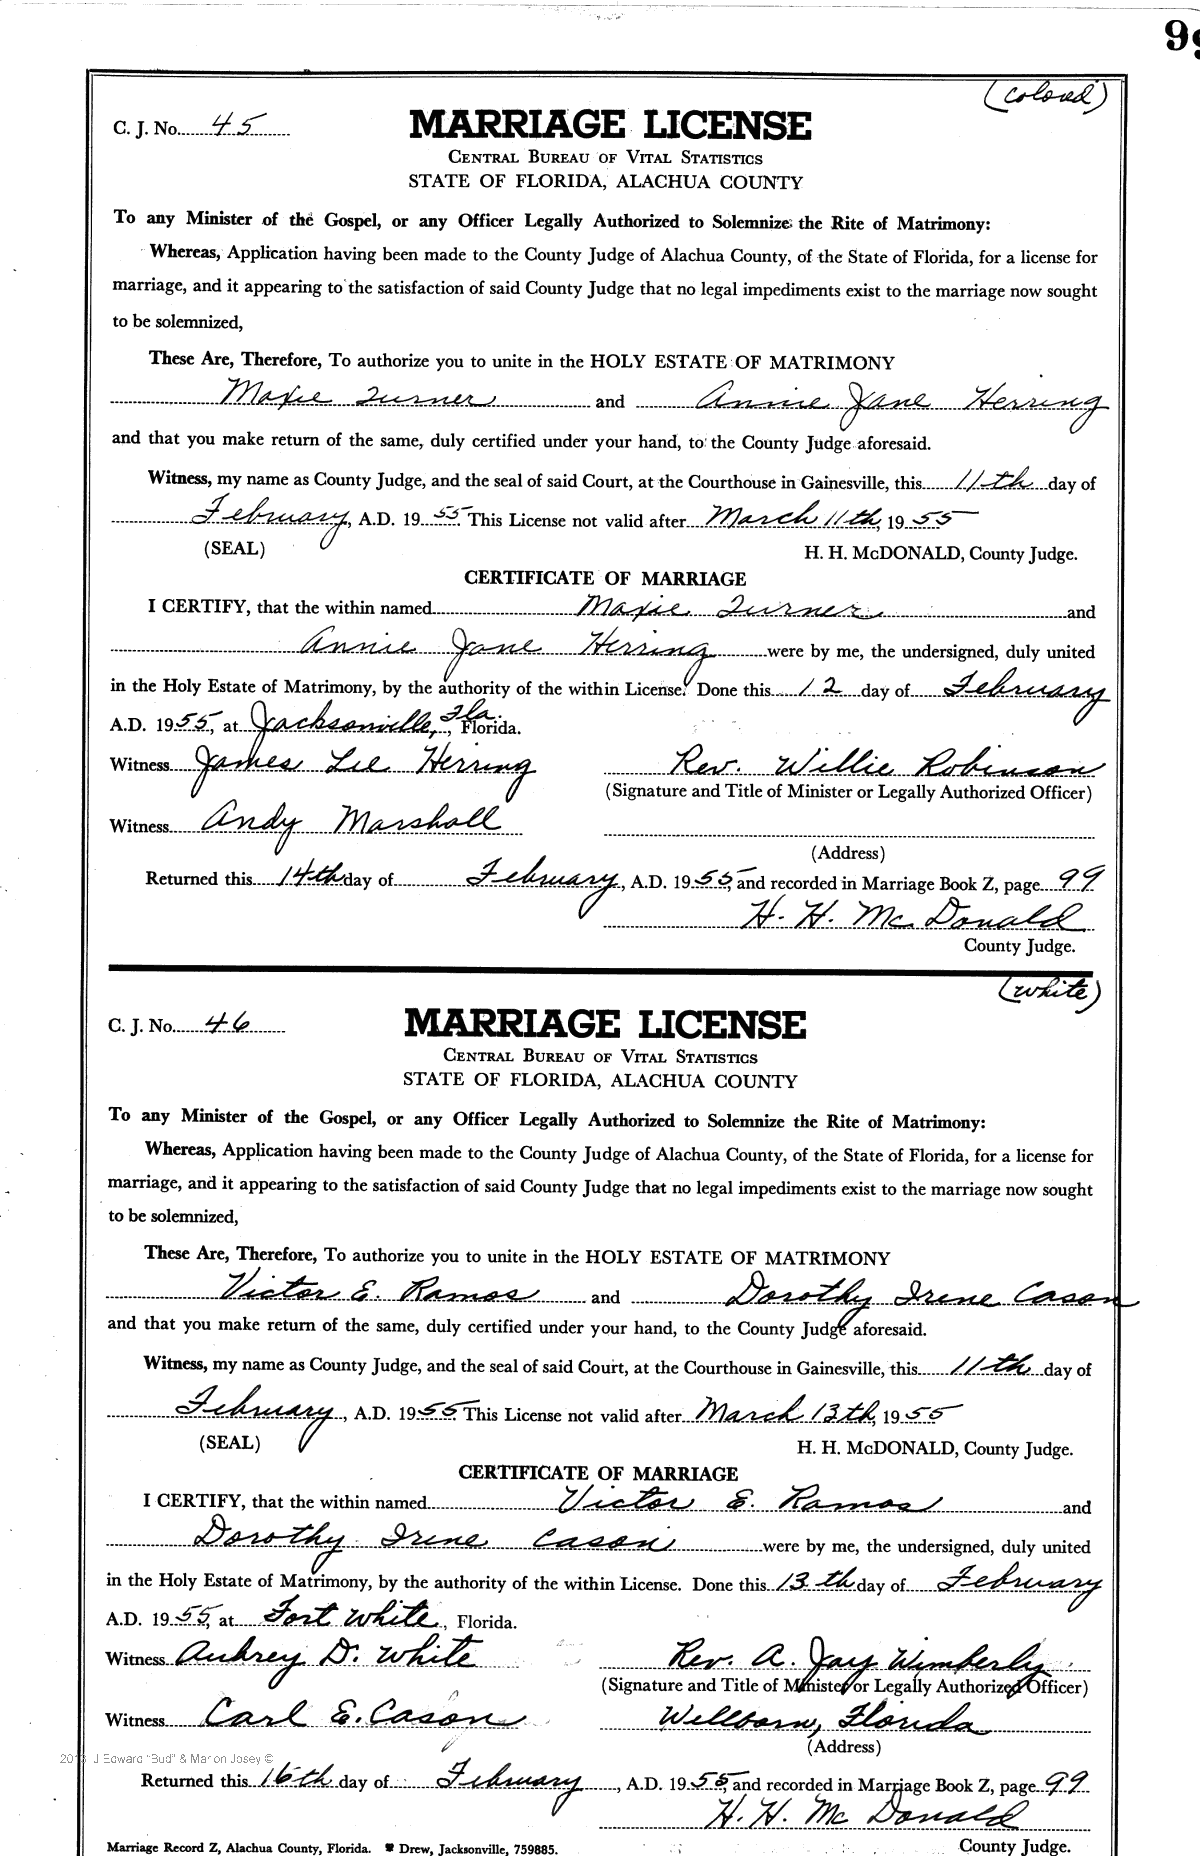 99
(colored)
C. J. No. 45
MARRIAGE LICENSE
CENTRAL BUREAU OF VITAL STATISTICS
STATE OF FLORIDA, ALACHUA COUNTY
To any Minister of the Gospel, or any Officer Legally Authorized to Solemnize the Rite of Matrimony:
Whereas, Application having been made to the County Judge of Alachua County, of the State of Florida, for a license for
marriage, and it appearing to the satisfaction of said County Judge that no legal impediments exist to the marriage now sought
to be solemnized,
These Are, Therefore, To authorize you to unite in the HOLY ESTATE OF MATRIMONY
Maxie Turner and Annie Jane Herring
and that you make return of the same, duly certified under your hand, to the County Judge aforesaid.
Witness, my name as County Judge, and the seal of said Court, at the Courthouse in Gainesville, this 11th day of
February, A.D. 1955. This License not valid after March 11th, 1955
(SEAL) H. H. McDONALD, County Judge.
CERTIFICATE OF MARRIAGE
I CERTIFY, that the within named Maxie Turner and
Annie Jane Herring were by me, the undersigned, duly united
in the Holy Estate of Matrimony, by the authority of the within License. Done this 12 day of February
A.D. 1955, at Jacksonville, Fla., Florida.
Witness James Lee Herring Rev. Willie Robinson
(Signature and Title of Minister or Legally Authorized Officer)
Witness Andy Marshall
(Address)
Returned this 14th day of February, A.D. 1955, and recorded in Marriage Book Z, page 99
H. H. McDonald
County Judge.
(white)
C. J. No. 46
MARRIAGE LICENSE
CENTRAL BUREAU OF VITAL STATISTICS
STATE OF FLORIDA, ALACHUA COUNTY
To any Minister of the Gospel, or any Officer Legally Authorized to Solemnize the Rite of Matrimony:
Whereas, Application having been made to the County Judge of Alachua County, of the State of Florida, for a license for
marriage, and it appearing to the satisfaction of said County Judge that no legal impediments exist to the marriage now sought
to be solemnized,
These Are, Therefore, To authorize you to unite in the HOLY ESTATE OF MATRIMONY
Victor E. Ramos and Dorothy Irene Cason
and that you make return of the same, duly certified under your hand, to the County Judge aforesaid.
Witness, my name as County Judge, and the seal of said Court, at the Courthouse in Gainesville, this 11th day of
February, A.D. 1955. This License not valid after March 13th, 1955
(SEAL) H. H. McDONALD, County Judge.
CERTIFICATE OF MARRIAGE
I CERTIFY, that the within named Victor E. Ramos and
Dorothy Irene Cason were by me, the undersigned, duly united
in the Holy Estate of Matrimony, by the authority of the within License. Done this 13th day of February
A.D. 1955, at Fort White, Florida.
Witness Aubrey D. White Rev. A. Jay Wimberly
(Signature and Title of Minister or Legally Authorized Officer)
Witness Carl E. Cason Wellborn, Florida
(Address)
J Edward "Bud" & Marion Josey ©
Returned this 16th day of February, A.D. 1955, and recorded in Marriage Book Z, page 99
H. H. McDonald
Marriage Record Z, Alachua County, Florida. Drew, Jacksonville, 759885. County Judge.